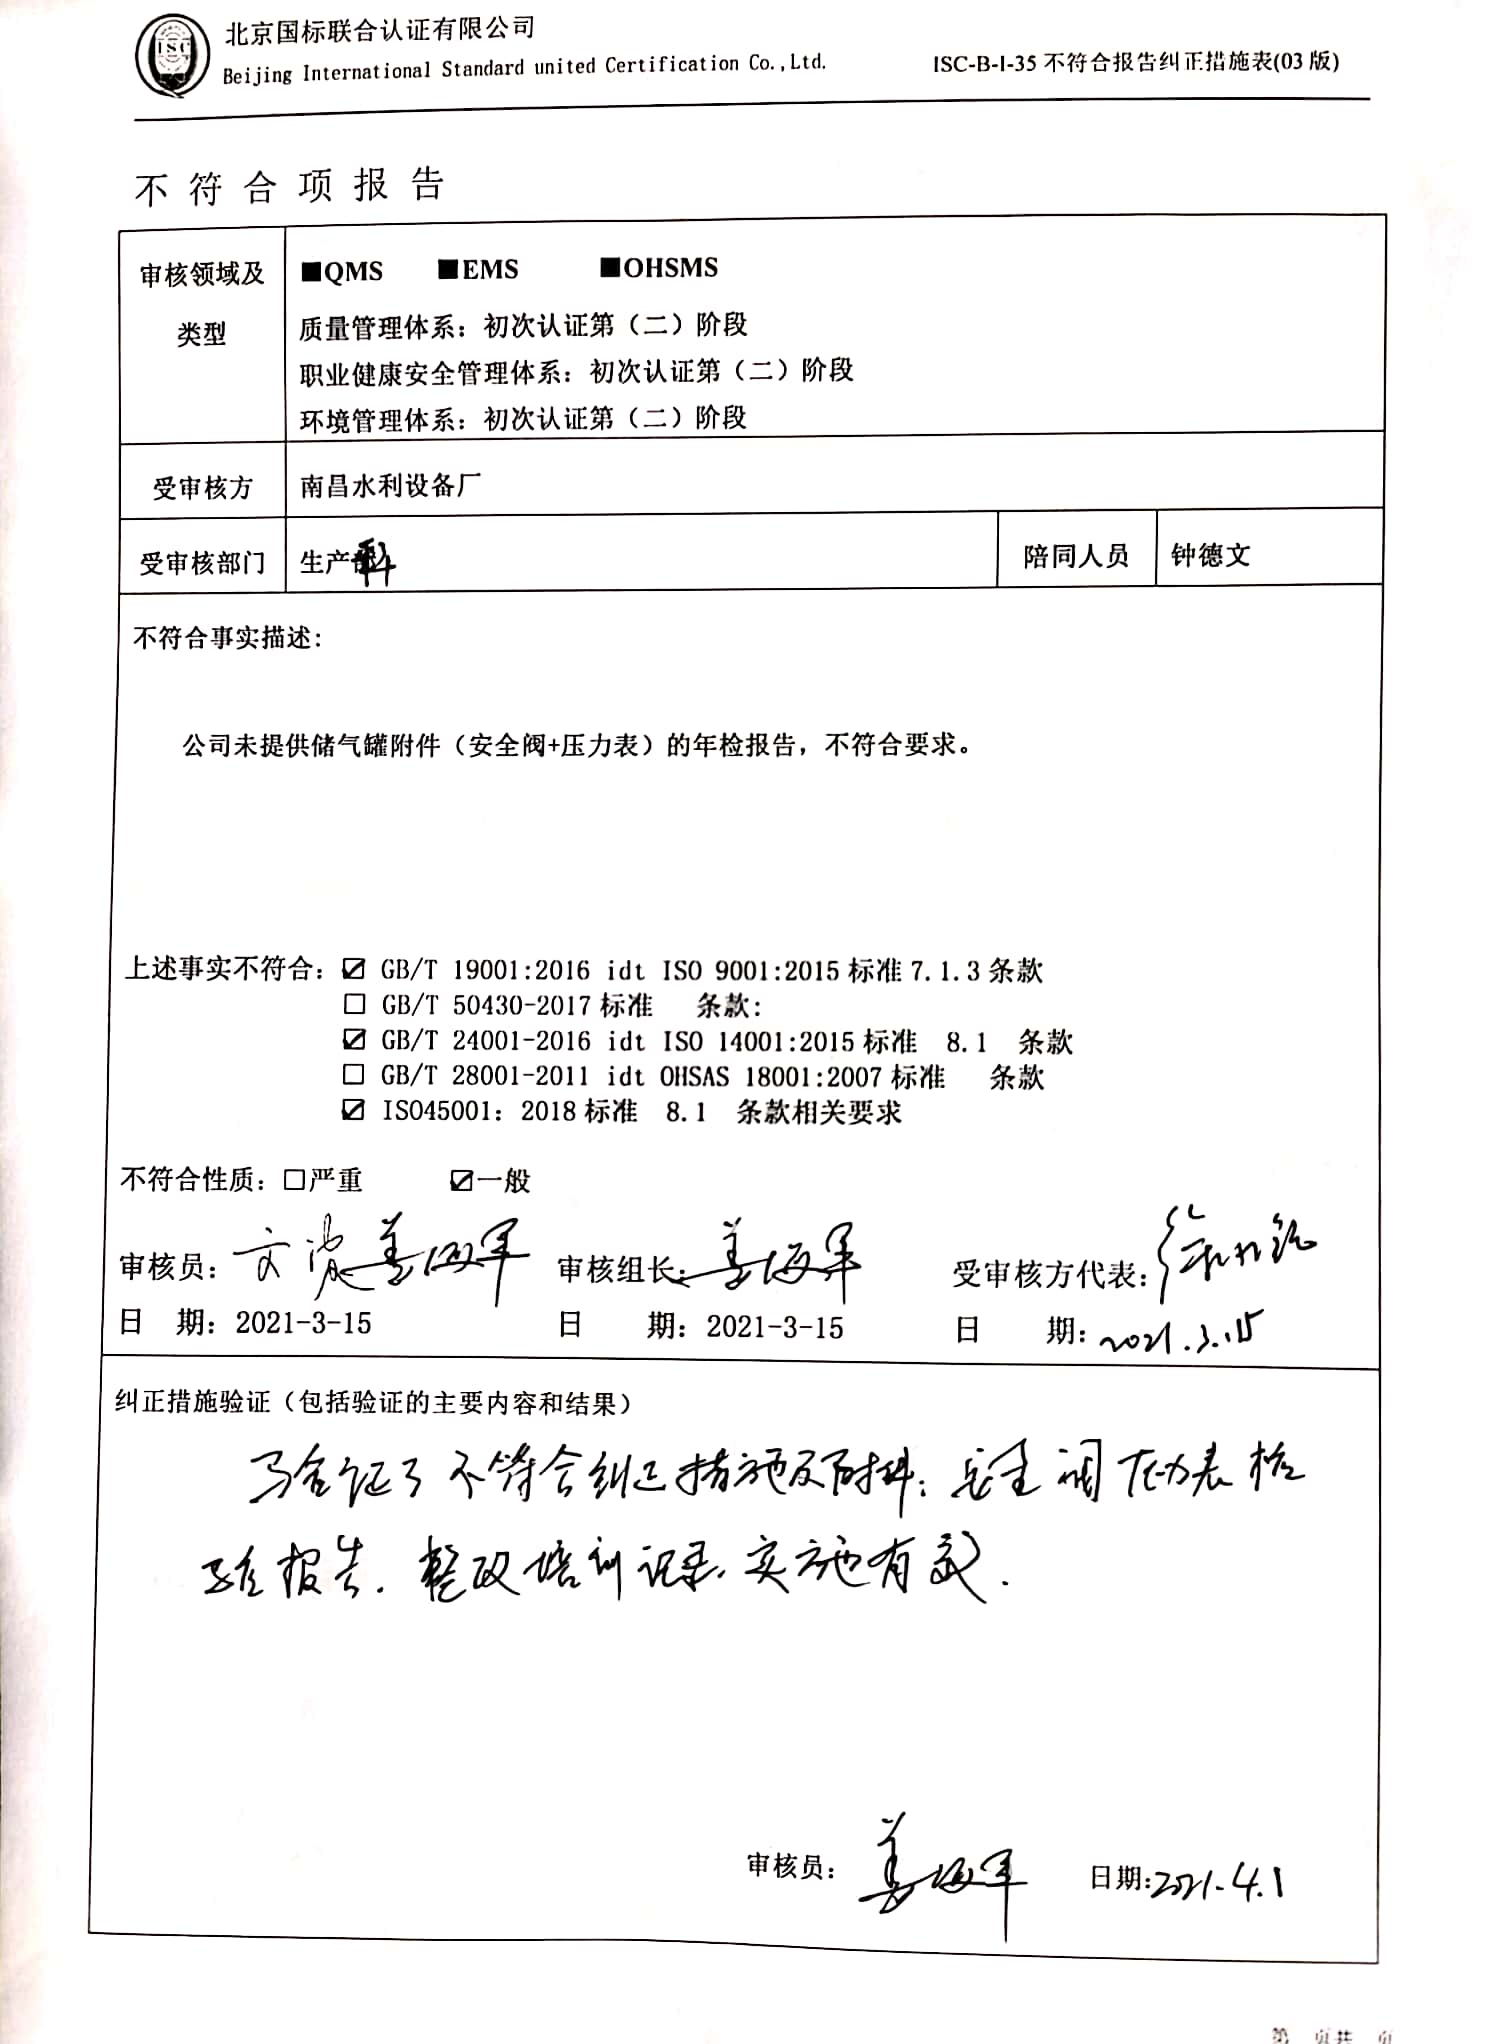 ISC
北京国标联合认证有限公司
Beijing International Standard united Certification Co.,Ltd.
ISC-B-I-35 不符合报告纠正措施表(03 版)
不符合项报告
审核领域及
类型
■QMS ■EMS ■OHSMS
质量管理体系：初次认证第（二）阶段
职业健康安全管理体系：初次认证第（二）阶段
环境管理体系：初次认证第（二）阶段
受审核方 南昌水利设备厂
受审核部门 生产科 陪同人员 钟德文
不符合事实描述：
公司未提供储气罐附件（安全阀+压力表）的年检报告，不符合要求。
上述事实不符合：☑ GB/T 19001:2016 idt ISO 9001:2015 标准 7.1.3 条款
□ GB/T 50430-2017 标准 条款：
☑ GB/T 24001-2016 idt ISO 14001:2015 标准 8.1 条款
□ GB/T 28001-2011 idt OHSAS 18001:2007 标准 条款
☑ ISO45001：2018 标准 8.1 条款相关要求
不符合性质：□严重 ☑一般
审核员：文波 姜海军 审核组长：姜海军 受审核方代表：
日 期：2021-3-15 日 期：2021-3-15 日 期：2021.3.15
纠正措施验证（包括验证的主要内容和结果）
验证了不符合纠正措施及附件：安全阀压力表检
验报告．整改培训记录，实施有效．
审核员：姜海军 日期:2021.4.1
第 页共 页